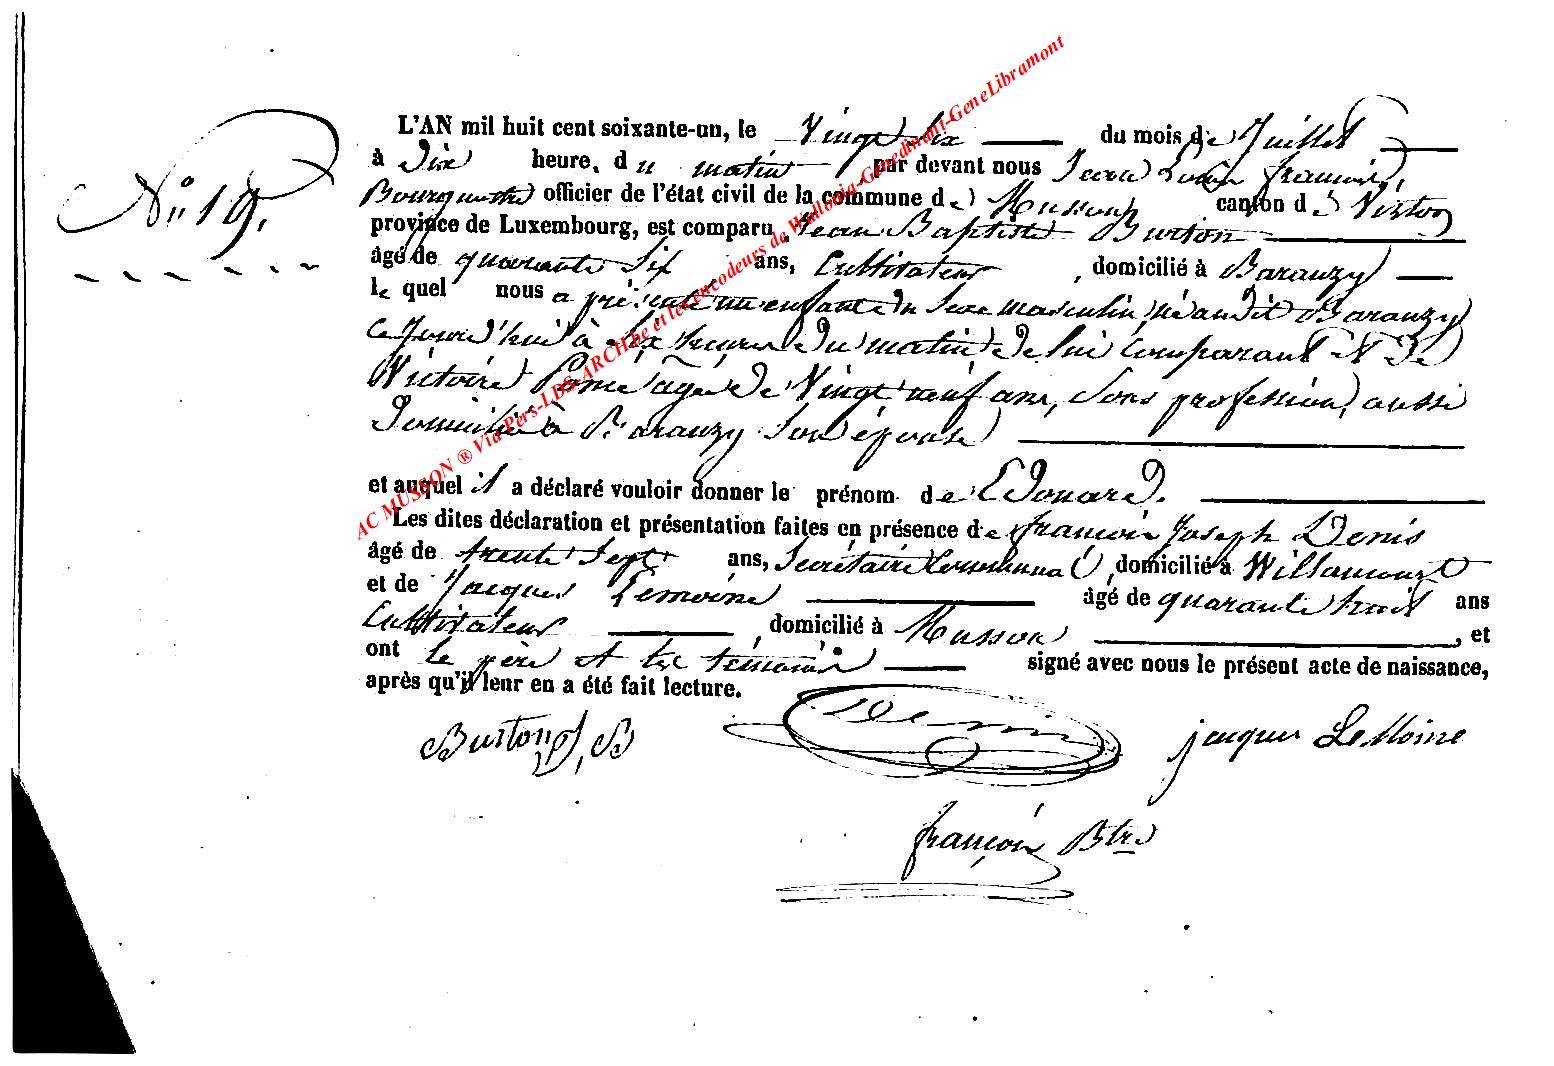 N.° 19.
L'AN mil huit cent soixante-un, le Vingt Six du mois de Juillet
à Dix heure. du matin par devant nous Jean Louis françois
officier de l'état civil de la commune de Musson canton de Virton
province de Luxembourg, est comparu Jean Baptiste Burton
âgé de quarante Six ans, Cultivateur, domicilié à Baranzy
le quel nous a présenté un enfant du Sexe masculin né au dit Baranzy
Ce Jourd'hui à Six heures du matin de lui Comparant et de
Victoire âgée de Vingt neuf ans, Sans profession, aussi
Domiciliée à Baranzy Son épouse
et auquel il a déclaré vouloir donner le prénom de Edouard.
Les dites déclaration et présentation faites en présence de françois Joseph Denis
âgé de trente Sept ans, Secrétaire Communal, domicilié à Willancourt
et de Jacques Lemoine âgé de quarante trois ans
Cultivateur, domicilié à Musson, et
ont le père et les témoins signé avec nous le présent acte de naissance,
après qu'il leur en a été fait lecture.
Burton J, B Denis jacques LeMoine
françois Btre
AC MUSSON ® Via Pers-LDS-ARCH.be et les encodeurs de Wallonia-Genedinant-GeneLibramont